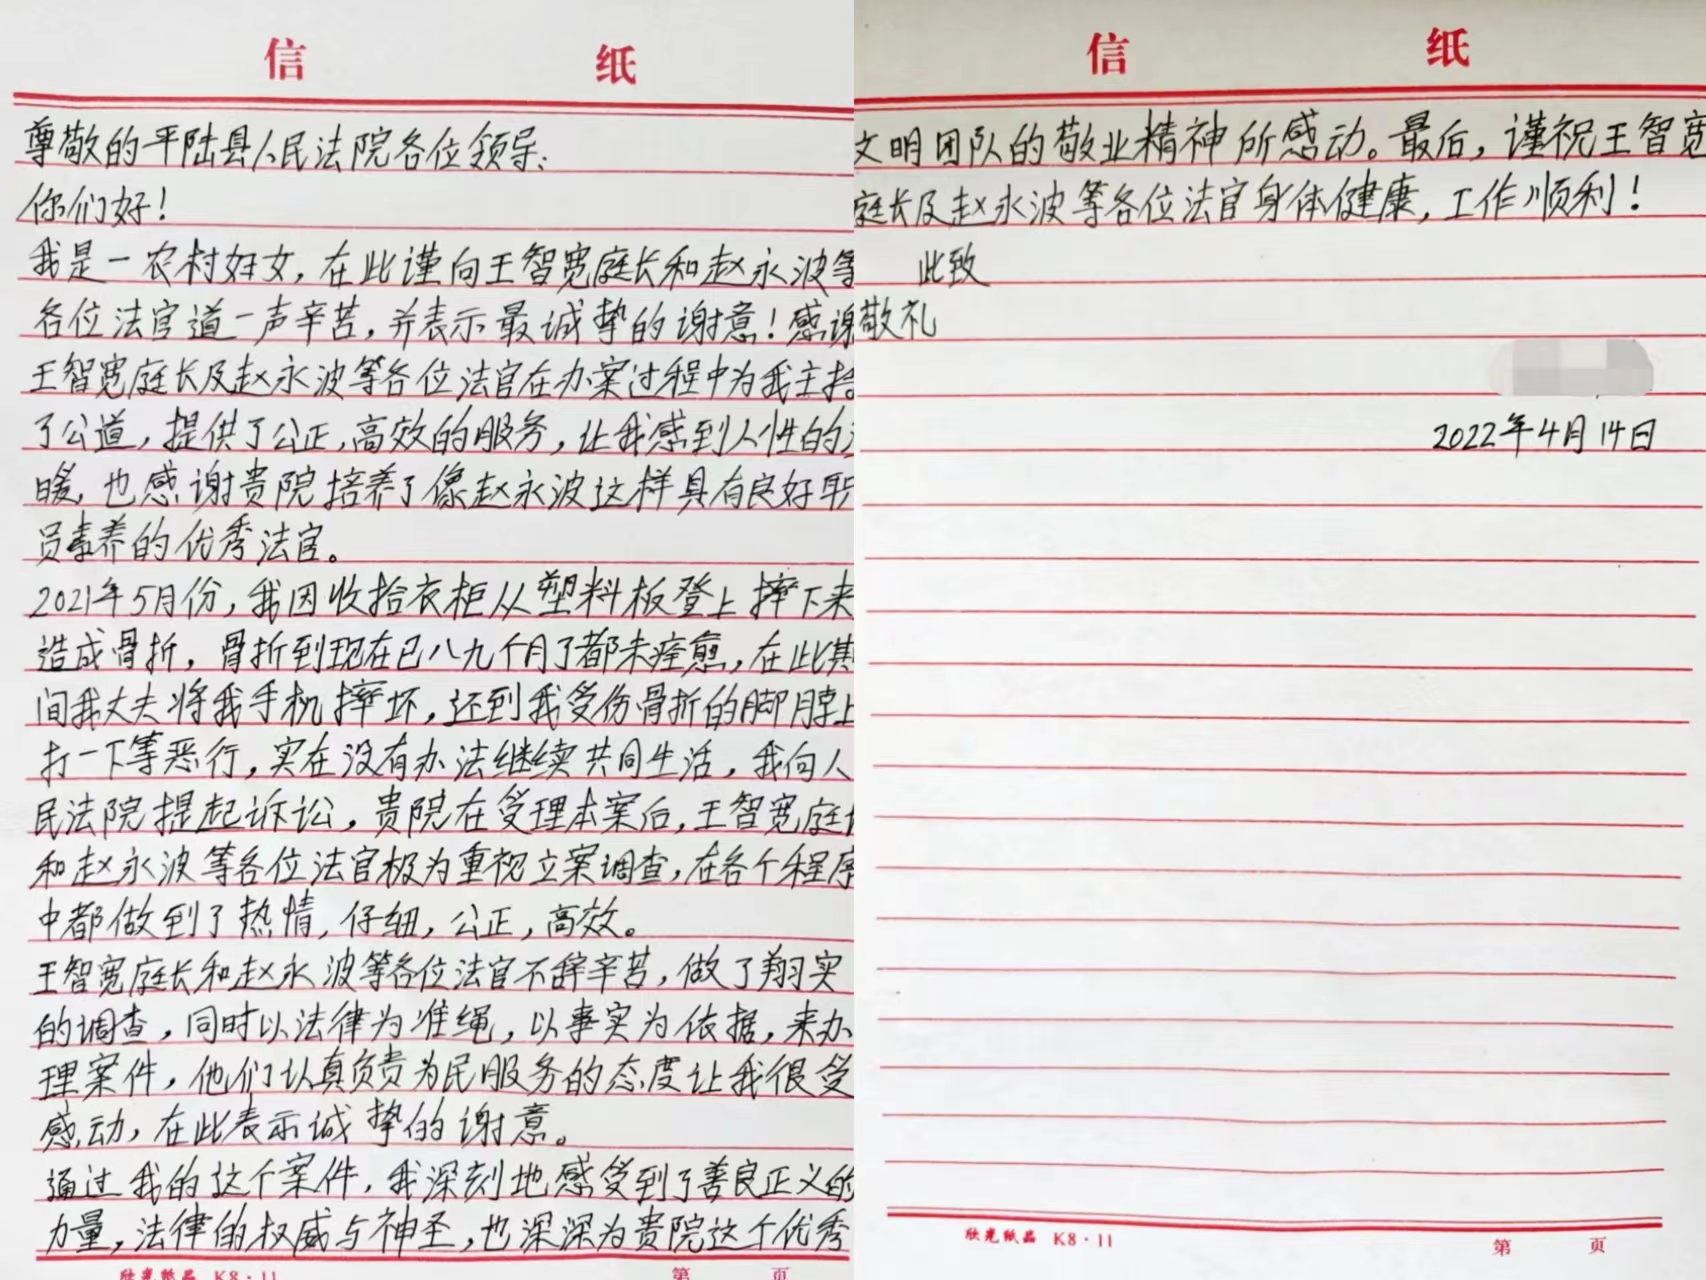 信 纸
尊敬的平陆县人民法院各位领导：
你们好！
我是一农村妇女，在此谨向王智宽庭长和赵永波等
各位法官道一声辛苦，并表示最诚挚的谢意！感谢
王智宽庭长及赵永波等各位法官在办案过程中为我主持
了公道，提供了公正，高效的服务，让我感到人性的温
暖，也感谢贵院培养了像赵永波这样具有良好职
员素养的优秀法官。
2021年5月份，我因收拾衣柜从塑料板登上摔下来
造成骨折，骨折到现在已八九个月了都未痊愈，在此期
间我丈夫将我手机摔坏，还到我受伤骨折的脚脖上
打一下等恶行，实在没有办法继续共同生活，我向人
民法院提起诉讼，贵院在受理本案后，王智宽庭长
和赵永波等各位法官极为重视立案调查，在各个程序
中都做到了热情，仔细，公正，高效。
王智宽庭长和赵永波等各位法官不辞辛苦，做了翔实
的调查，同时以法律为准绳，以事实为依据，来办
理案件，他们认真负责为民服务的态度让我很受
感动，在此表示诚挚的谢意。
通过我的这个案件，我深刻地感受到了善良正义的
力量，法律的权威与神圣，也深深为贵院这个优秀
欣光纸品 K8·11 第 页
信 纸
文明团队的敬业精神所感动。最后，谨祝王智宽
庭长及赵永波等各位法官身体健康，工作顺利！
此致
敬礼
2022年4月14日
欣光纸品 K8·11 第 页